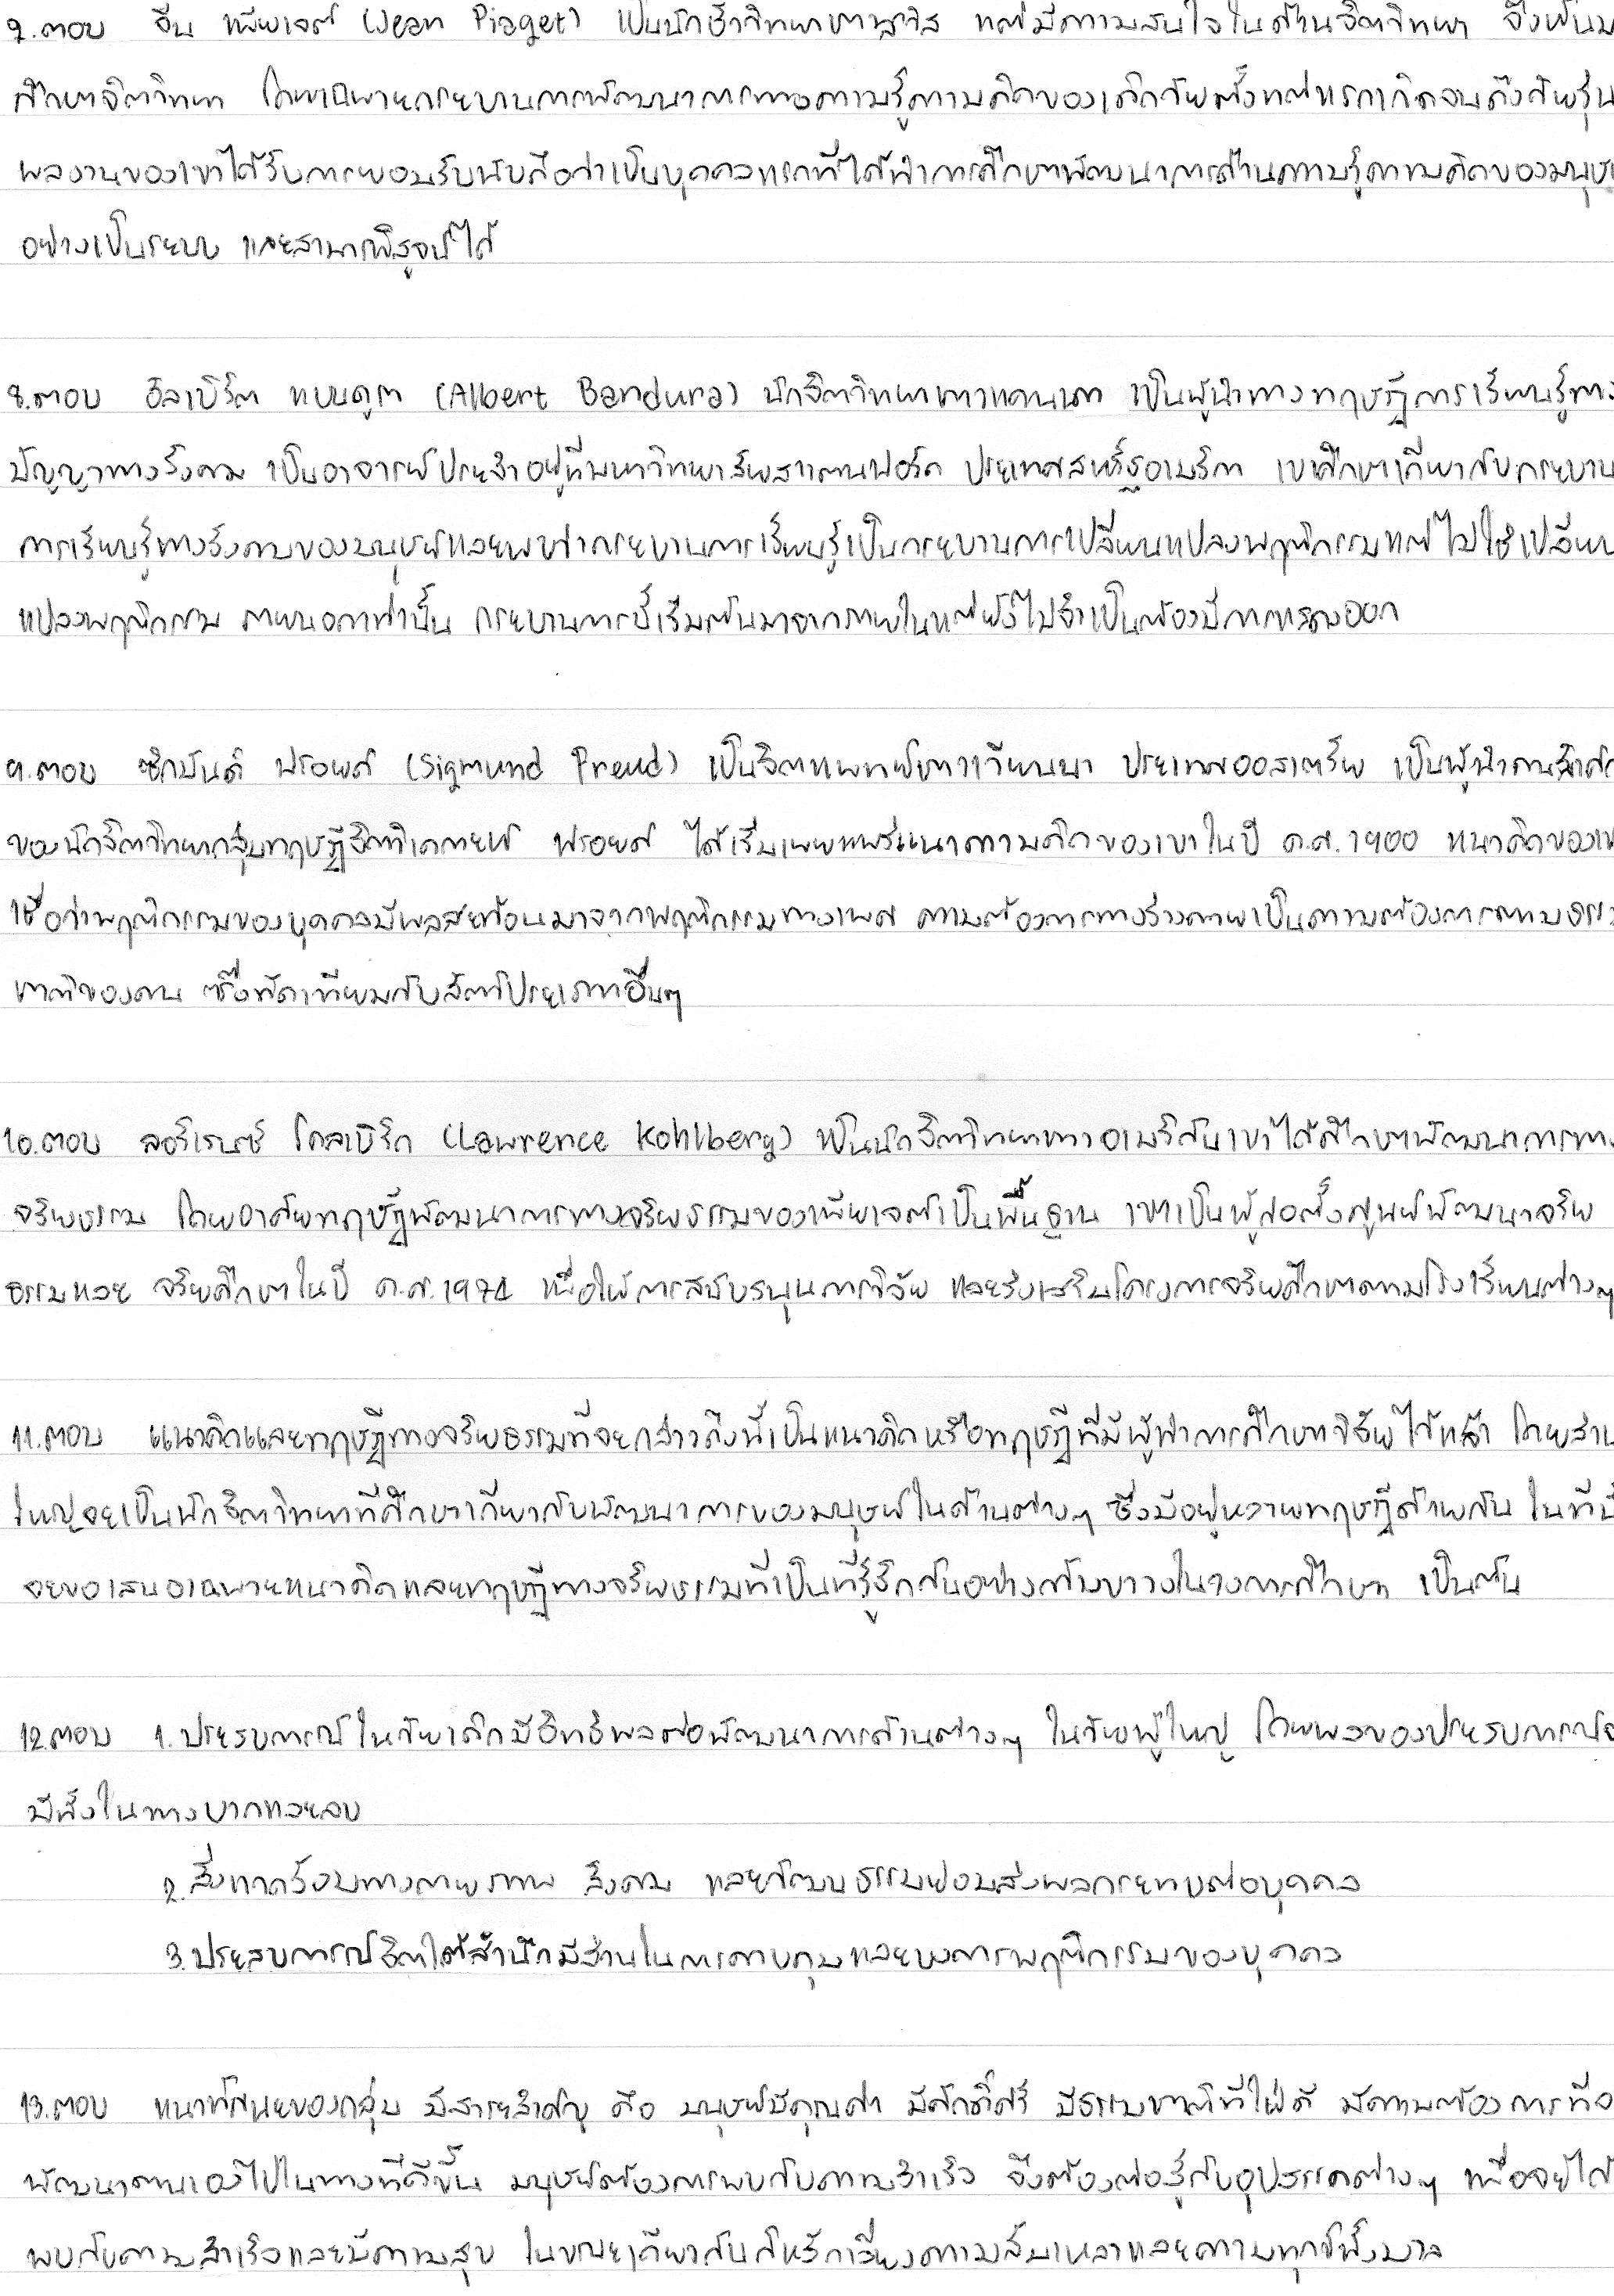 7.ตอบ จีน เพียเจต์ (Jean Piaget) เป็นนักชีววิทยาชาวสวิส แต่มีความสนใจในด้านจิตวิทยา จึงหันม
ศึกษาจิตวิทยา โดยเฉพาะกระบวนการพัฒนาการทางความรู้ความคิดของเด็กวัยตั้งแต่แรกเกิดจนถึงวัยรุ่น
ผลงานของเขาได้รับการยอมรับนับถือว่าเป็นบุคคลแรกที่ได้ทำการศึกษาพัฒนาการด้านความรู้ความคิดของมนุษย
อย่างเป็นระบบ และสามารถพิสูจน์ได้
8.ตอบ อัลเบิร์ต แบนดูรา (Albert Bandura) นักจิตวิทยาชาวแคนาดา เป็นผู้นำทางทฤษฎีการเรียนรู้ทาง
ปัญญาทางสังคม เป็นอาจารย์ประจำอยู่ที่มหาวิทยาลัยสแตนฟอร์ด ประเทศสหรัฐอเมริกา เขาศึกษาเกี่ยวกับกระบวน
การเรียนรู้ทางสังคมของมนุษย์และพบว่ากระบวนการเรียนรู้เป็นกระบวนการเปลี่ยนแปลงพฤติกรรมแต่ไม่ใช่เปลี่ยน
แปลงพฤติกรรม ภายนอกเท่านั้น กระบวนการนี้เริ่มต้นมาจากภายในแต่ยังไม่จำเป็นต้องมีการแสดงออก
9.ตอบ ซิกมันด์ ฟรอยด์ (Sigmund Freud) เป็นจิตแพทย์ชาวเวียนนา ประเทศออสเตรีย เป็นผู้นำคนสำคั
ของนักจิตวิทยากลุ่มทฤษฎีจิตวิเคราะห์ ฟรอยด์ ได้เริ่มเผยแพร่แนวความคิดของเขาในปี ค.ศ.1900 แนวคิดของเข
เชื่อว่าพฤติกรรมของบุคคลมีผลสะท้อนมาจากพฤติกรรมทางเพศ ความต้องการทางร่างกายเป็นความต้องการตามธรร
ชาติของคน ซึ่งทัดเทียมกับสัตว์ประเภทอื่นๆ
10.ตอบ ลอว์เรนซ์ โคลเบิร์ก (Lawrence Kohlberg) เป็นนักจิตวิทยาชาวอเมริกันเขาได้ศึกษาพัฒนาการทาง
จริยธรรม โดยอาศัยทฤษฎีพัฒนาการทางจริยธรรมของเพียเจต์เป็นพื้นฐาน เขาเป็นผู้ก่อตั้งศูนย์พัฒนาจริย
ธรรมและ จริยศึกษาในปี ค.ศ.1974 เพื่อให้การสนับสนุนการวิจัย และส่งเสริมโครงการจริยศึกษาตามโรงเรียนต่างๆ
11.ตอบ แนวคิดและทฤษฎีทางจริยธรรมที่จะกล่าวถึงนี้เป็นแนวคิดหรือทฤษฎีที่มีผู้ทำการศึกษาวิจัยไว้แล้ว โดยส่วน
ใหญ่จะเป็นนักจิตวิทยาที่ศึกษาเกี่ยวกับพัฒนาการของมนุษย์ในด้านต่างๆ ซึ่งมีอยู่หลายทฤษฎีด้วยกัน ในที่นี้
จะขอเสนอเฉพาะแนวคิดและทฤษฎีทางจริยธรรมที่เป็นที่รู้จักกันอย่างกว้างขวางในวงการศึกษา เป็นต้น
12.ตอบ 1.ประสบการณ์ในวัยเด็กมีอิทธิพลต่อพัฒนาการด้านต่างๆ ในวัยผู้ใหญ่ โดยผลของประสบการณ์จ
มีทั้งในทางบวกและลบ
2.สิ่งแวดล้อมทางกายภาพ สังคม และวัฒนธรรมย่อมส่งผลกระทบต่อบุคคล
3.ประสบการณ์จิตใต้สำนึกมีส่วนในการควบคุมและบงการพฤติกรรมของบุคคล
13.ตอบ แนวทัศนะของกลุ่ม มีสาระสำคัญ คือ มนุษย์มีคุณค่า มีศักดิ์ศรี มีธรรมชาติที่ใฝ่ดี มีความต้องการที่จ
พัฒนาตนเองไปในทางที่ดีขึ้น มนุษย์ต้องการพบกับความสำเร็จ จึงต้องต่อสู้กับอุปสรรคต่างๆ เพื่อจะได้
พบกับความสำเร็จและมีความสุข ในขณะเดียวกันก็หลีกเลี่ยงความล้มเหลวและความทุกข์ทั้งมวล